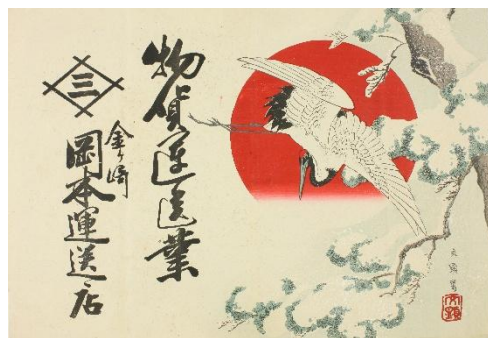 物貨運送業
三
金ヶ崎
岡本運送店